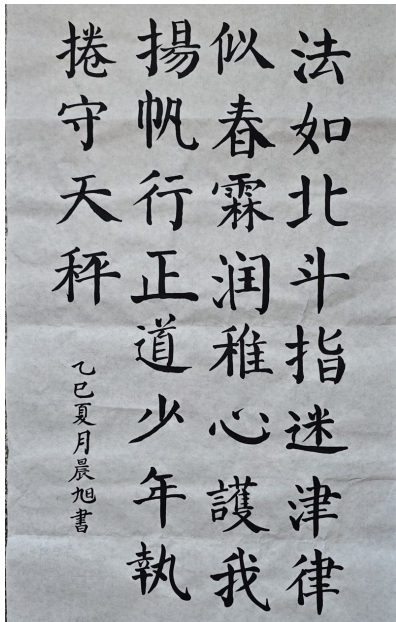 法如北斗指迷津律
似春霖润稚心護我
揚帆行正道少年執
捲守天秤
乙巳夏月晨旭書